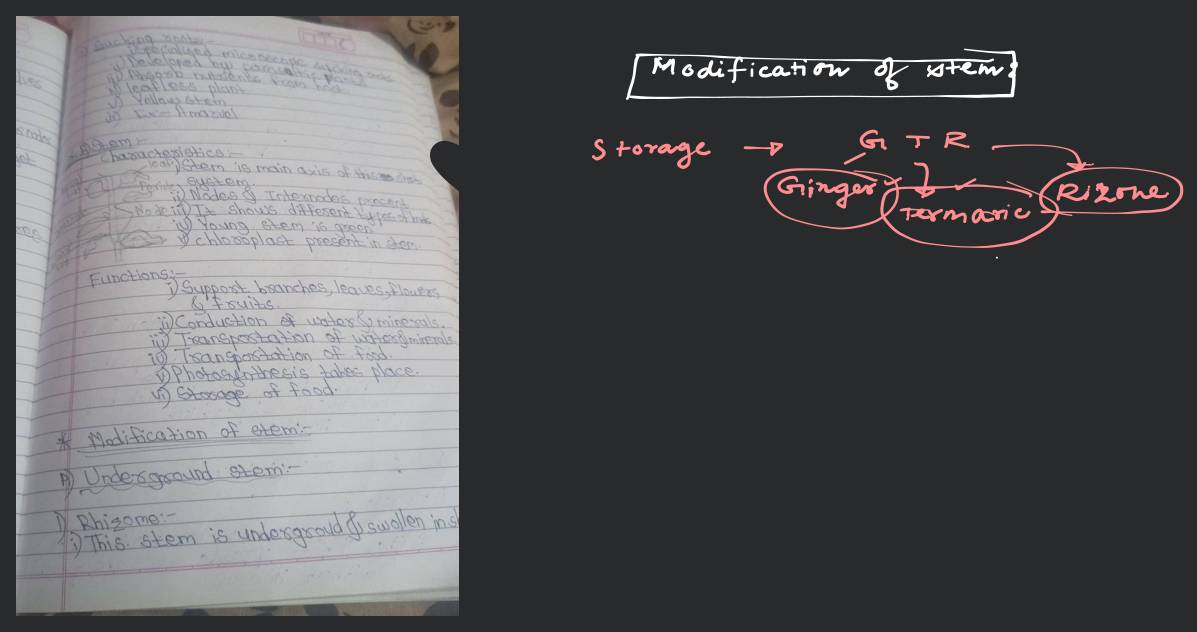 Sucking roots:-
i) specialised microscopic sucking roots
ii) Developed by parasitic plants
iii) Absorb nutrients from host
iv) leafless plant
v) Yellow stem
vi) Ex:- Amarvel
Stem:-
Characteristics:-
i) Stem is main axis of
system.
ii) Nodes & Internodes present
Node iii) It shows different types of
iv) Young stem is green
v) chloroplast present in stem.
Functions:-
i) Support branches, leaves, flowers
& fruits.
ii) Conduction of water & minerals.
iii) Transportation of water & minerals
iv) Transportation of food.
v) Photosynthesis takes place.
vi) Storage of food.
* Modification of stem:-
A) Underground stem:-
1) Rhizome:-
i) This stem is undergroud & swollen in
Modification of stem:
Storage → G T R
Ginger Termaric Rizone